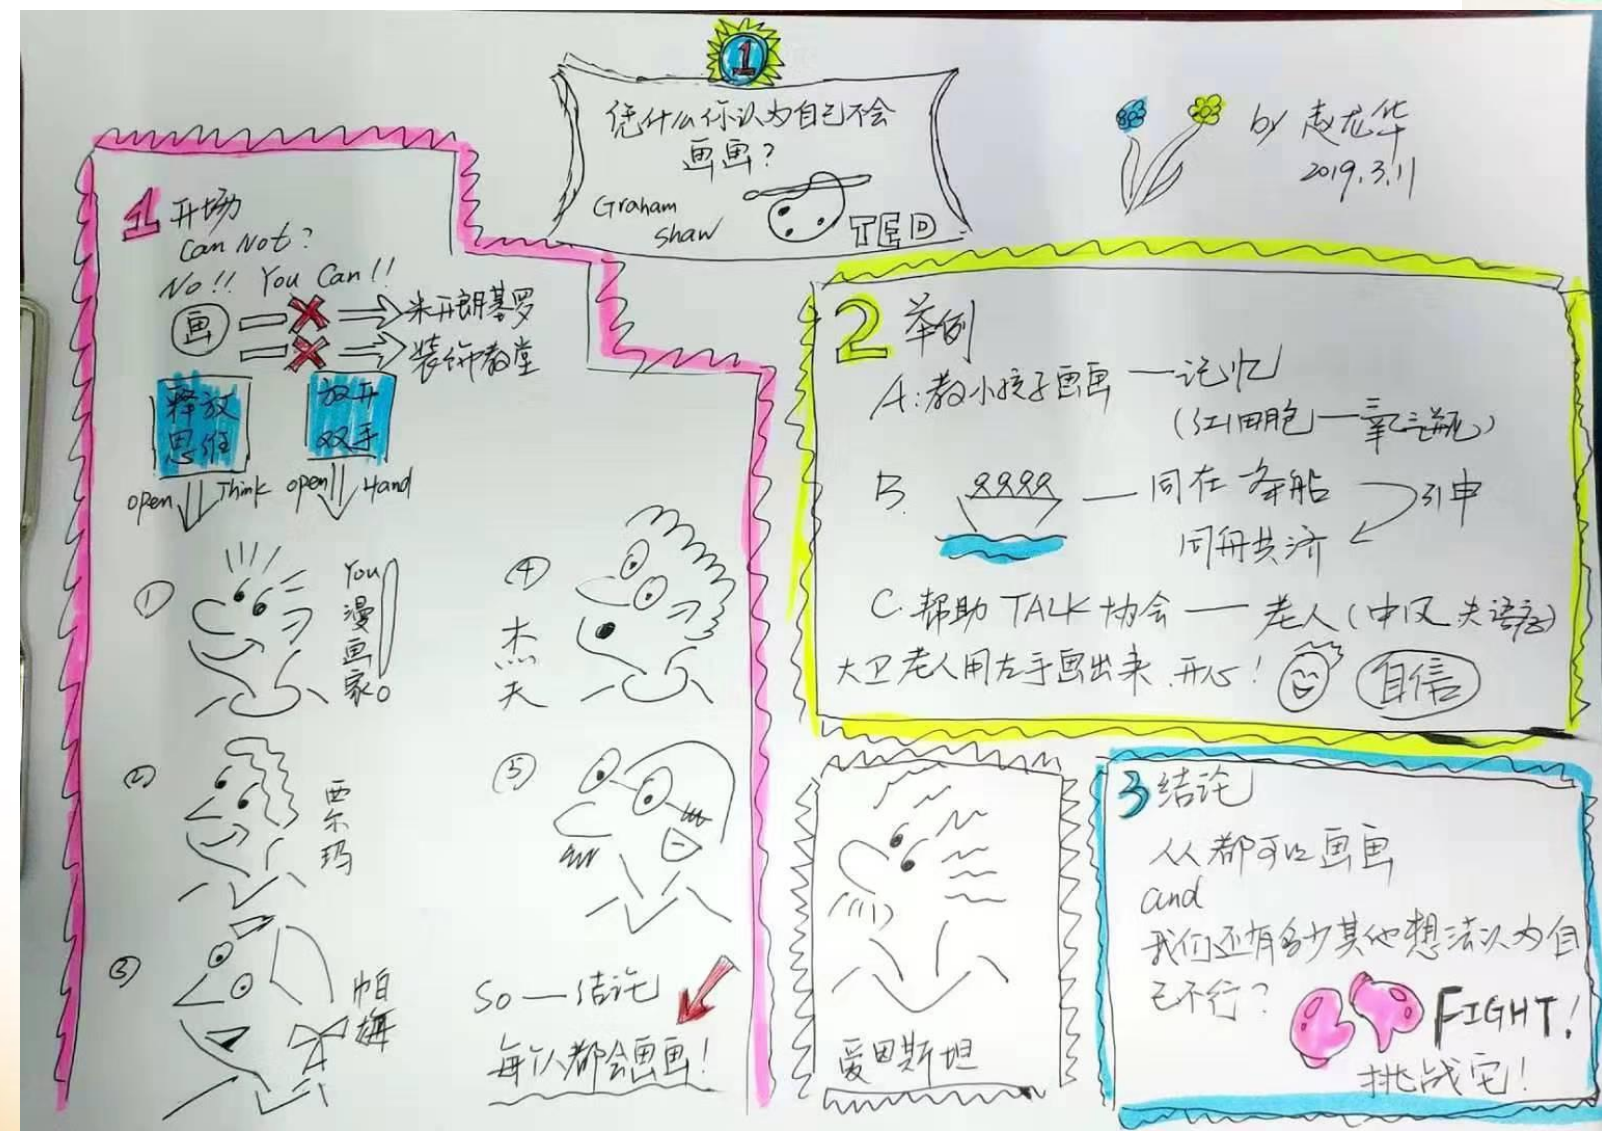 1
凭什么你认为自己不会
画画？
Graham
Shaw
TED
by 赵龙华
2019.3.11
1 开场
Can Not?
No!! You Can!!
画
米开朗基罗
装饰教堂
释放
思维
放开
双手
open Think
open Hand
①
You
漫
画
家。
②
西
尔
玛
③
帕
梅
④
杰
夫
⑤
So — 结论
每个人都会画画！
2 举例
A：教小孩子画画 — 记忆
（红细胞 — 氧气瓶）
B.
— 同在一条船
引申
同舟共济
C. 帮助 TALK 协会 — 老人（中风 失语症）
大卫老人用左手画出来，开心！
自信
爱因斯坦
3 结论
人人都可以画画
and
我们还有多少其他想法认为自
己不行？
FIGHT!
挑战它！